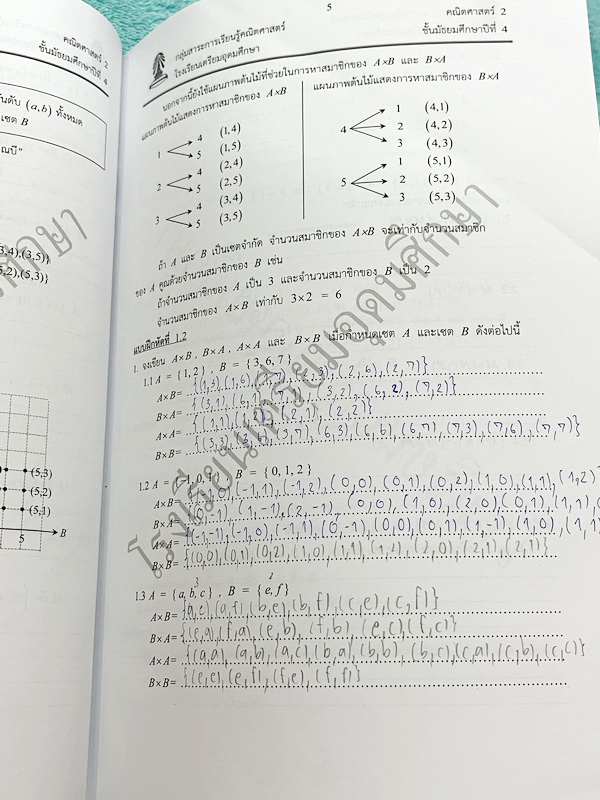 คณิตศาสตร์ 2
ชั้นมัธยมศึกษาปีที่ 4
(a,b) ทั้งหมด
เซต B
(5,3)
(5,2)
(5,1)
5
B
5
กลุ่มสาระการเรียนรู้คณิตศาสตร์
โรงเรียนเตรียมอุดมศึกษา
คณิตศาสตร์ 2
ชั้นมัธยมศึกษาปีที่ 4
นอกจากนี้ยังใช้แผนภาพต้นไม้ที่ช่วยในการหาสมาชิกของ A×B และ B×A
แผนภาพต้นไม้แสดงการหาสมาชิกของ A×B
1 4 (1,4)
5 (1,5)
2 4 (2,4)
5 (2,5)
3 4 (3,4)
5 (3,5)
แผนภาพต้นไม้แสดงการหาสมาชิกของ B×A
4 1 (4,1)
2 (4,2)
3 (4,3)
5 1 (5,1)
2 (5,2)
3 (5,3)
ถ้า A และ B เป็นเซตจำกัด จำนวนสมาชิกของ A×B จะเท่ากับจำนวนสมาชิก
ของ A คูณด้วยจำนวนสมาชิกของ B เช่น
ถ้าจำนวนสมาชิกของ A เป็น 3 และจำนวนสมาชิกของ B เป็น 2
จำนวนสมาชิกของ A×B เท่ากับ 3×2 = 6
แบบฝึกหัดที่ 1.2
1. จงเขียน A×B , B×A , A×A และ B×B เมื่อกำหนดเซต A และเซต B ดังต่อไปนี้
1.1 A = {1,2} , B = {3,6,7}
A×B= {(1,3),(1,6),(1,7),(2,3),(2,6),(2,7)}
B×A= {(3,1),(6,1),(7,1),(3,2),(6,2),(7,2)}
A×A= {(1,1),(1,2),(2,1),(2,2)}
B×B= {(3,3),(3,6),(3,7),(6,3),(6,6),(6,7),(7,3),(7,6),(7,7)}
1.2 A = {-1,0,1} , B = {0,1,2}
A×B= (-1,1),(-1,2),(0,0),(0,1),(0,2),(1,0),(1,1),(1,2)
B×A= (1,-1),(2,-1),(0,0),(1,0),(2,0)(0,1),(1,1),
A×A= {(-1,-1),(-1,0),(-1,1),(0,-1),(0,0),(0,1),(1,-1),(1,0),(1,1)
B×B= {(0,0),(0,1),(0,2),(1,0),(1,1),(1,2),(2,0),(2,1),(2,1)}
3 2
1.3 A = {a,b,c} , B = {e,f}
A×B= {(a,e),(a,f),(b,e),(b,f),(c,e),(c,f)}
B×A= {(e,a),(f,a),(e,b),(f,b),(e,c),(f,c)}
A×A= {(a,a),(a,b),(a,c),(b,a),(b,b),(b,c),(c,a),(c,b),(c,c)}
B×B= {(e,e),(e,f),(f,e),(f,f)}
โรงเรียนเตรียมอุดมศึกษา